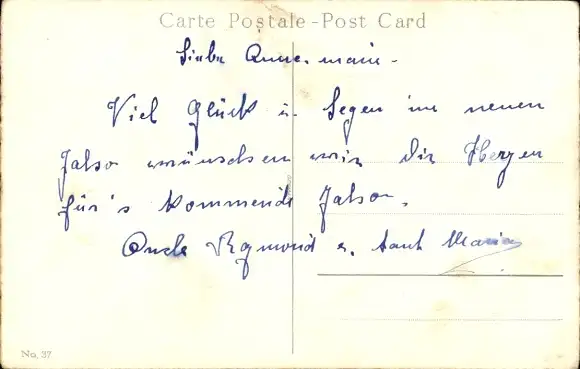 Carte Postale - Post Card
Liebe Annemarie -
Viel Glück u. Segen im neuen
Jahre wünschen wir dir Herzen
für's kommende Jahr.
Onkle u. tant Maria
No. 37